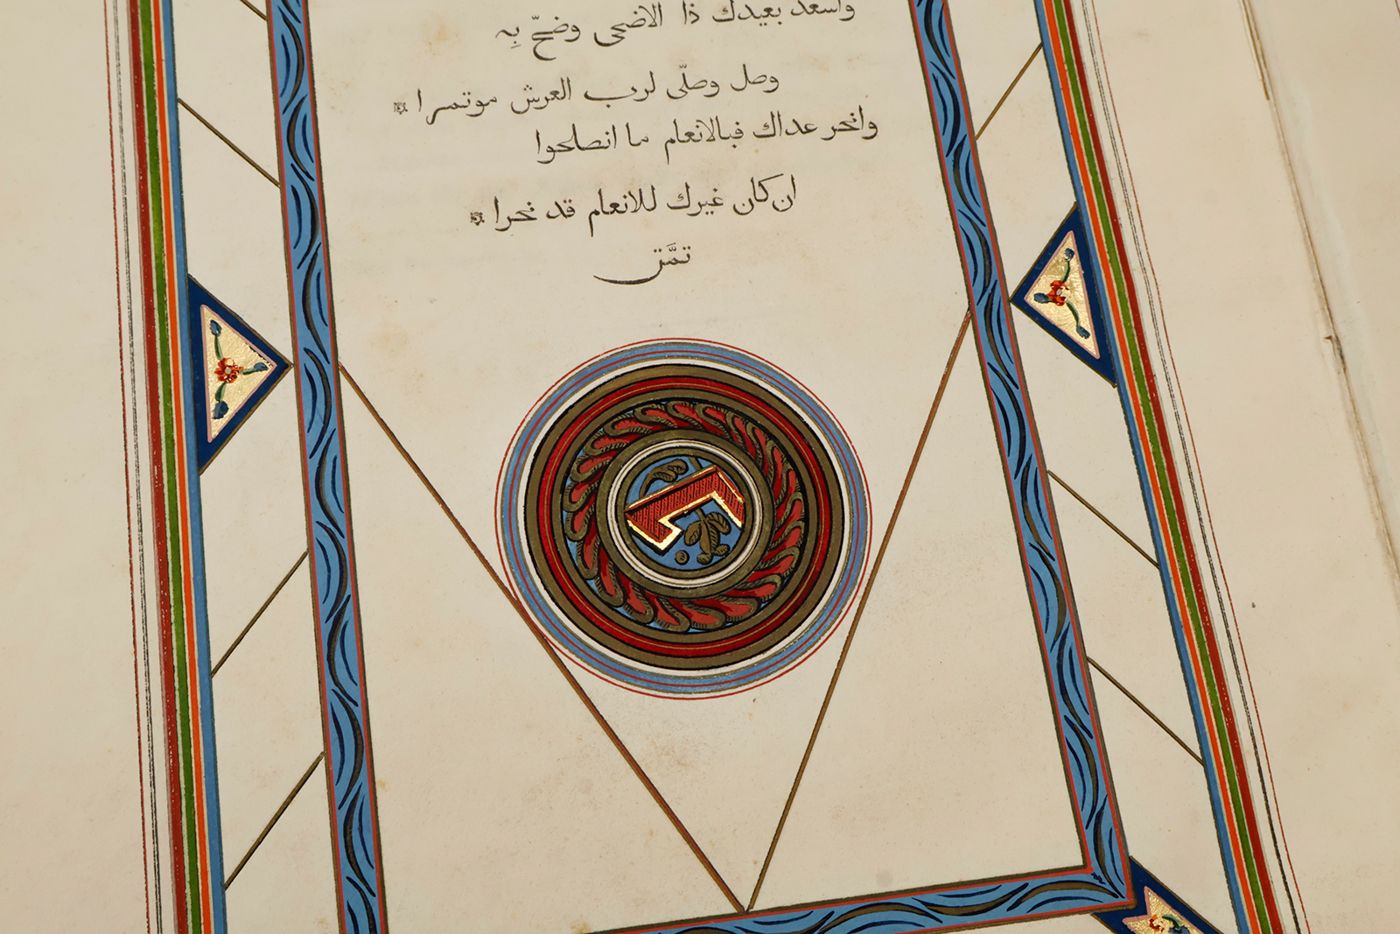 واسعد بعيدك ذا الاضحى وضحّ بِه
وصل وصلّى لرب العرش موتمرا
وانحر عداك فبالانعام ما انصلحوا
ان كان غيرك للانعام قد نحرا
تمّت